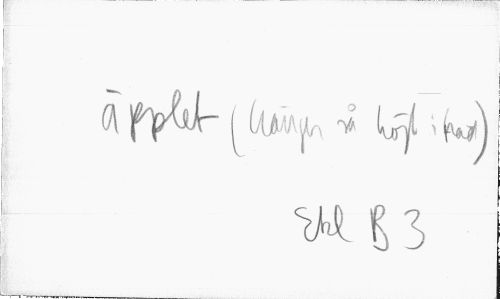 äpplet (hänger så högt i trad)
Ekl B 3